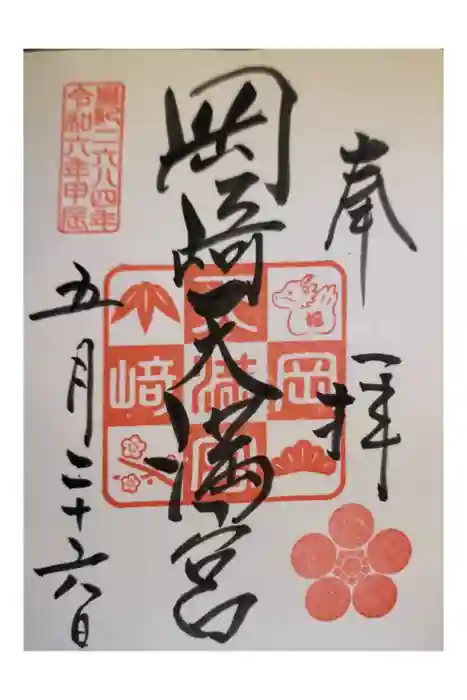 奉拝
岡崎天満宮
天満宮
岡
崎
福
皇紀二六八四年
令和六年甲辰
五月二十六日